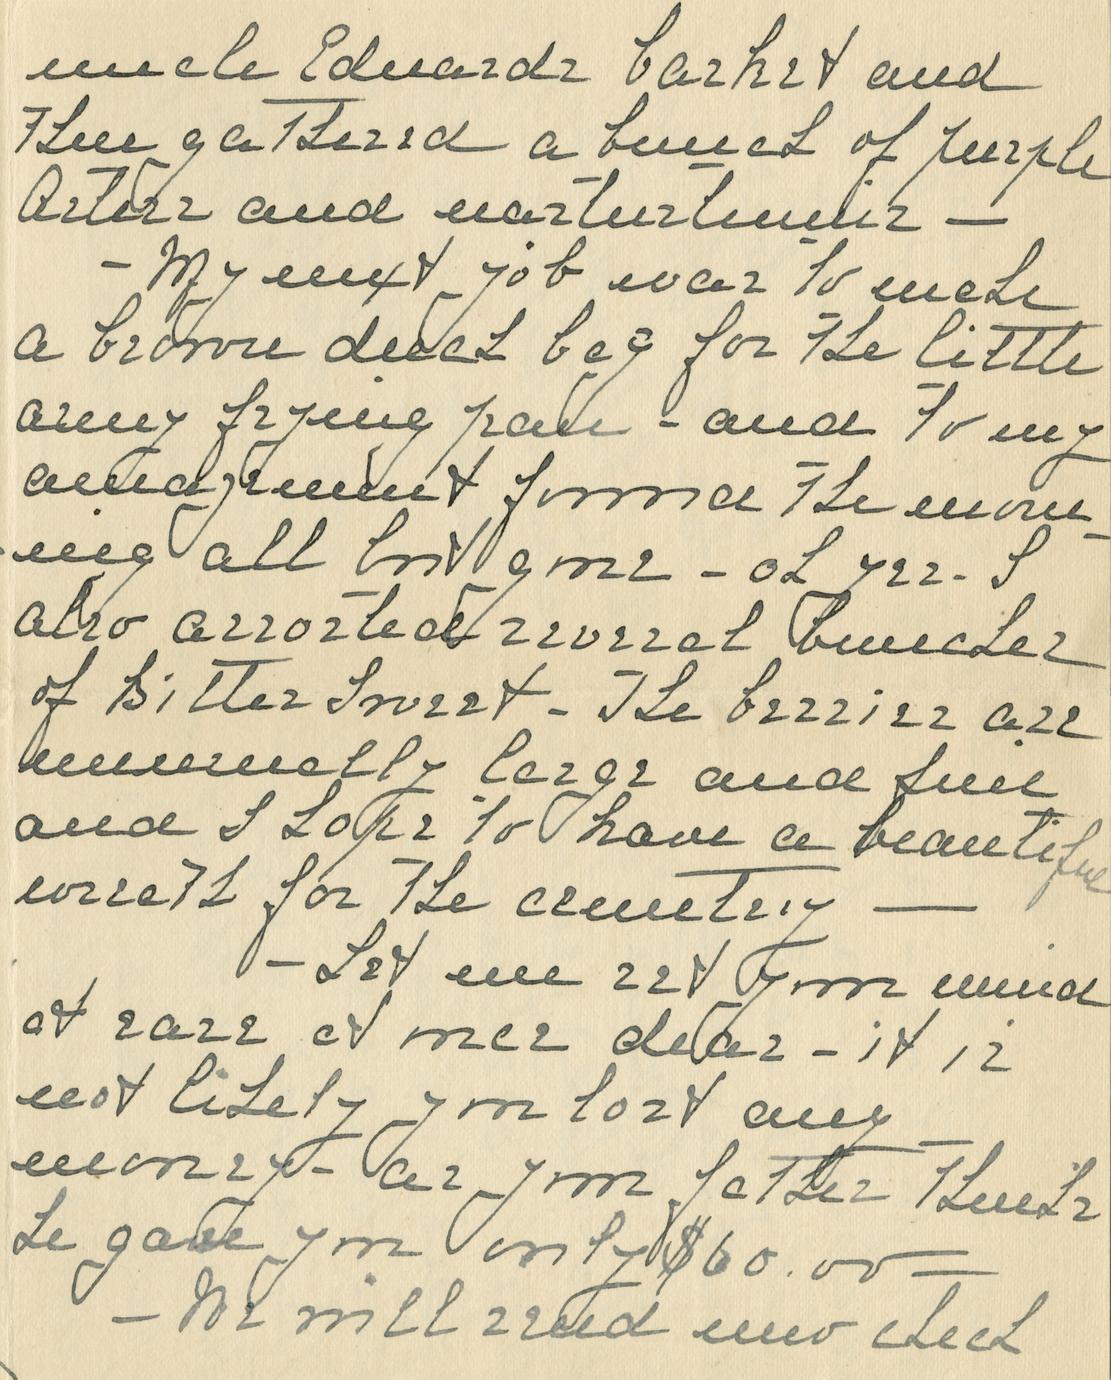 uncle Edwards basket and
then gathered a bunch of purple
Asters and nasturtiums —
- My next job was to make
a brown duck bag for the little
army frying pan - and to my
amazement found the morn-
ing all but gone - oh yes - I
also assorted several bunches
of Bitter Sweet - The berries are
unusually large and fine
and I hope to have a beautiful
wreath for the cemetry —
- Let me set your mind
at ease at once dear - it is
not likely you lost any
money - as your father thinks
he gave you only $60.00 —
- We will send two check